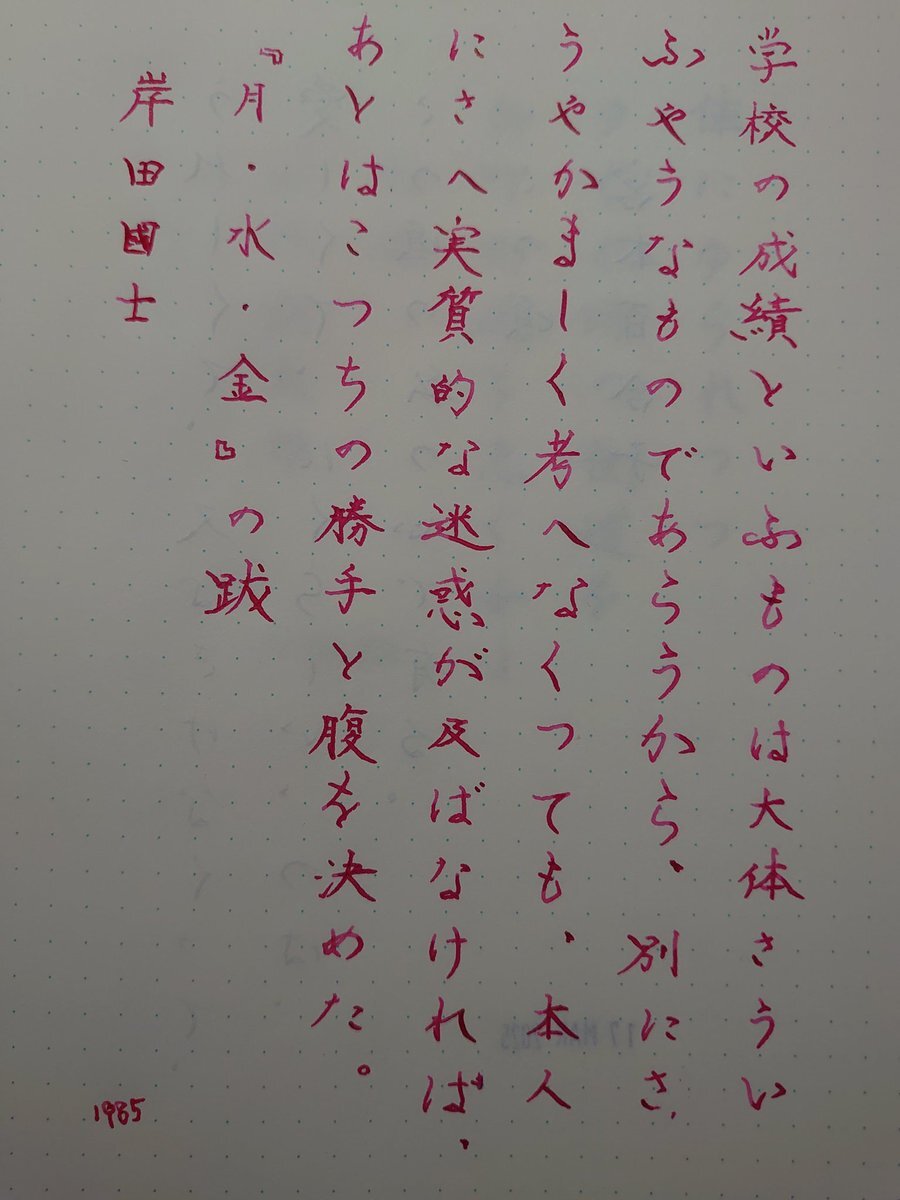 学校の成績といふものは大体さうい
ふやうなものであらうから、別にさ
うやかましく考へなくつても、本人
にさへ実質的な迷惑が及ばなければ、
あとはこつちの勝手と腹を決めた。
『月・水・金』の跋
岸田國士
1985